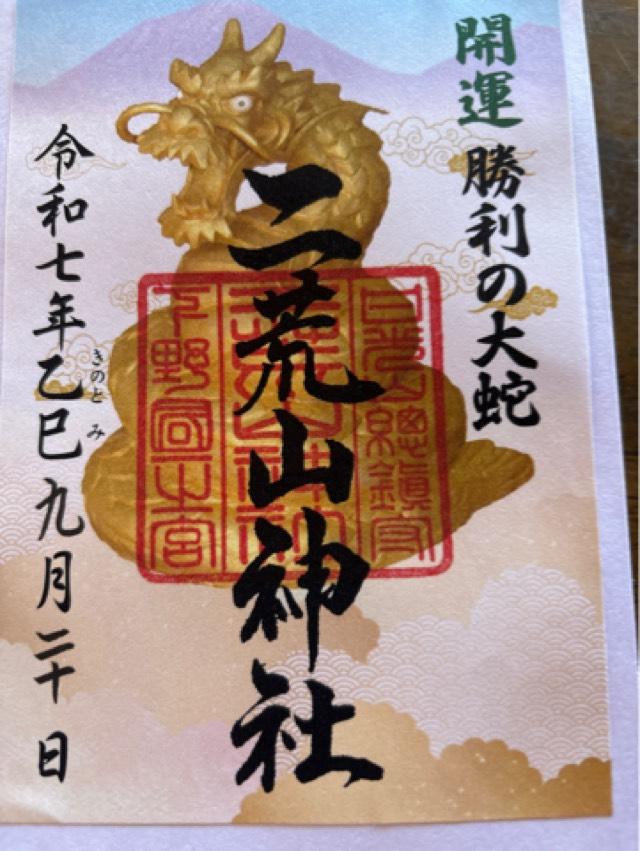 開運 勝利の大蛇
二荒山神社
日光山總鎮守
二荒山神社
下野國一宮
令和七年乙巳九月二十日
きのと み